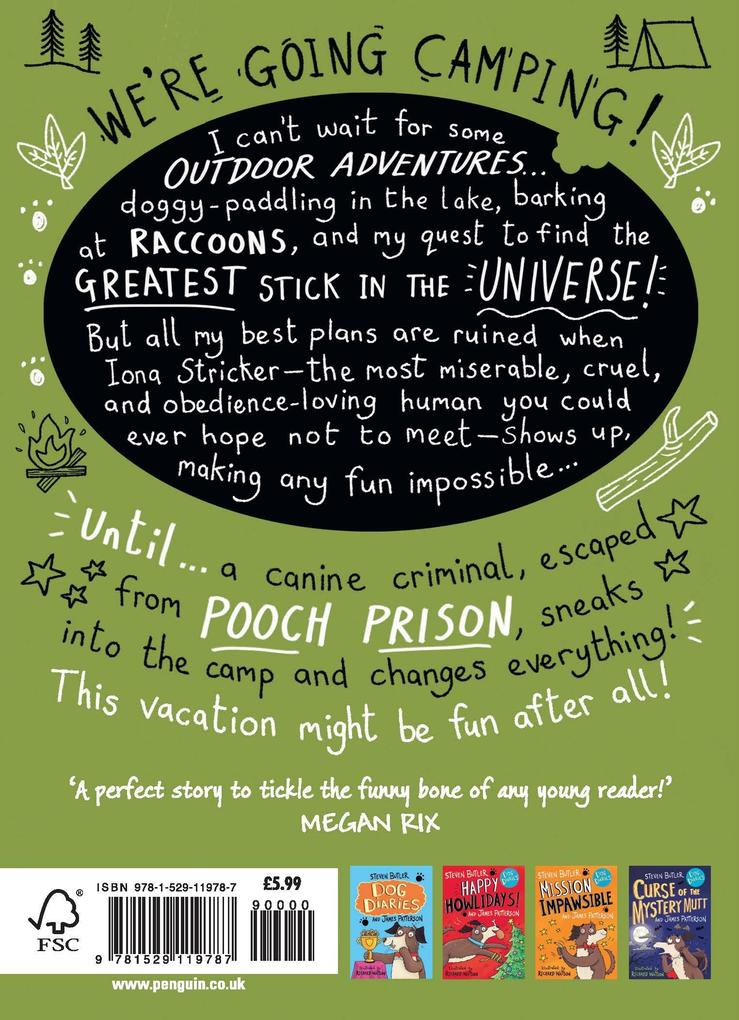 WE'RE GOING CAMPING!
I can't wait for some
OUTDOOR ADVENTURES...
doggy-paddling in the lake, barking
at RACCOONS, and my quest to find the
GREATEST STICK IN THE UNIVERSE!
But all my best plans are ruined when
Iona Stricker—the most miserable, cruel,
and obedience-loving human you could
ever hope not to meet—shows up,
making any fun impossible...
Until... a canine criminal, escaped
from POOCH PRISON, sneaks
into the camp and changes everything!
This vacation might be fun after all!
‘A perfect story to tickle the funny bone of any young reader!’
MEGAN RIX
FSC
®
ISBN 978-1-529-11978-7
£5.99
90000
9 781529 119787
www.penguin.co.uk
STEVEN BUTLER
DOG
DIARIES
AND JAMES PATTERSON
Illustrated by
RICHARD WATSON
STEVEN BUTLER
DOG DIARIES
HAPPY
HOWLIDAYS!
AND JAMES PATTERSON
Illustrated by
RICHARD WATSON
STEVEN BUTLER
DOG DIARIES
MISSION
IMPAWSIBLE
AND JAMES PATTERSON
Illustrated by
RICHARD WATSON
STEVEN BUTLER
DOG DIARIES
CURSE OF THE
MYSTERY MUTT
AND JAMES PATTERSON
Illustrated by
RICHARD WATSON